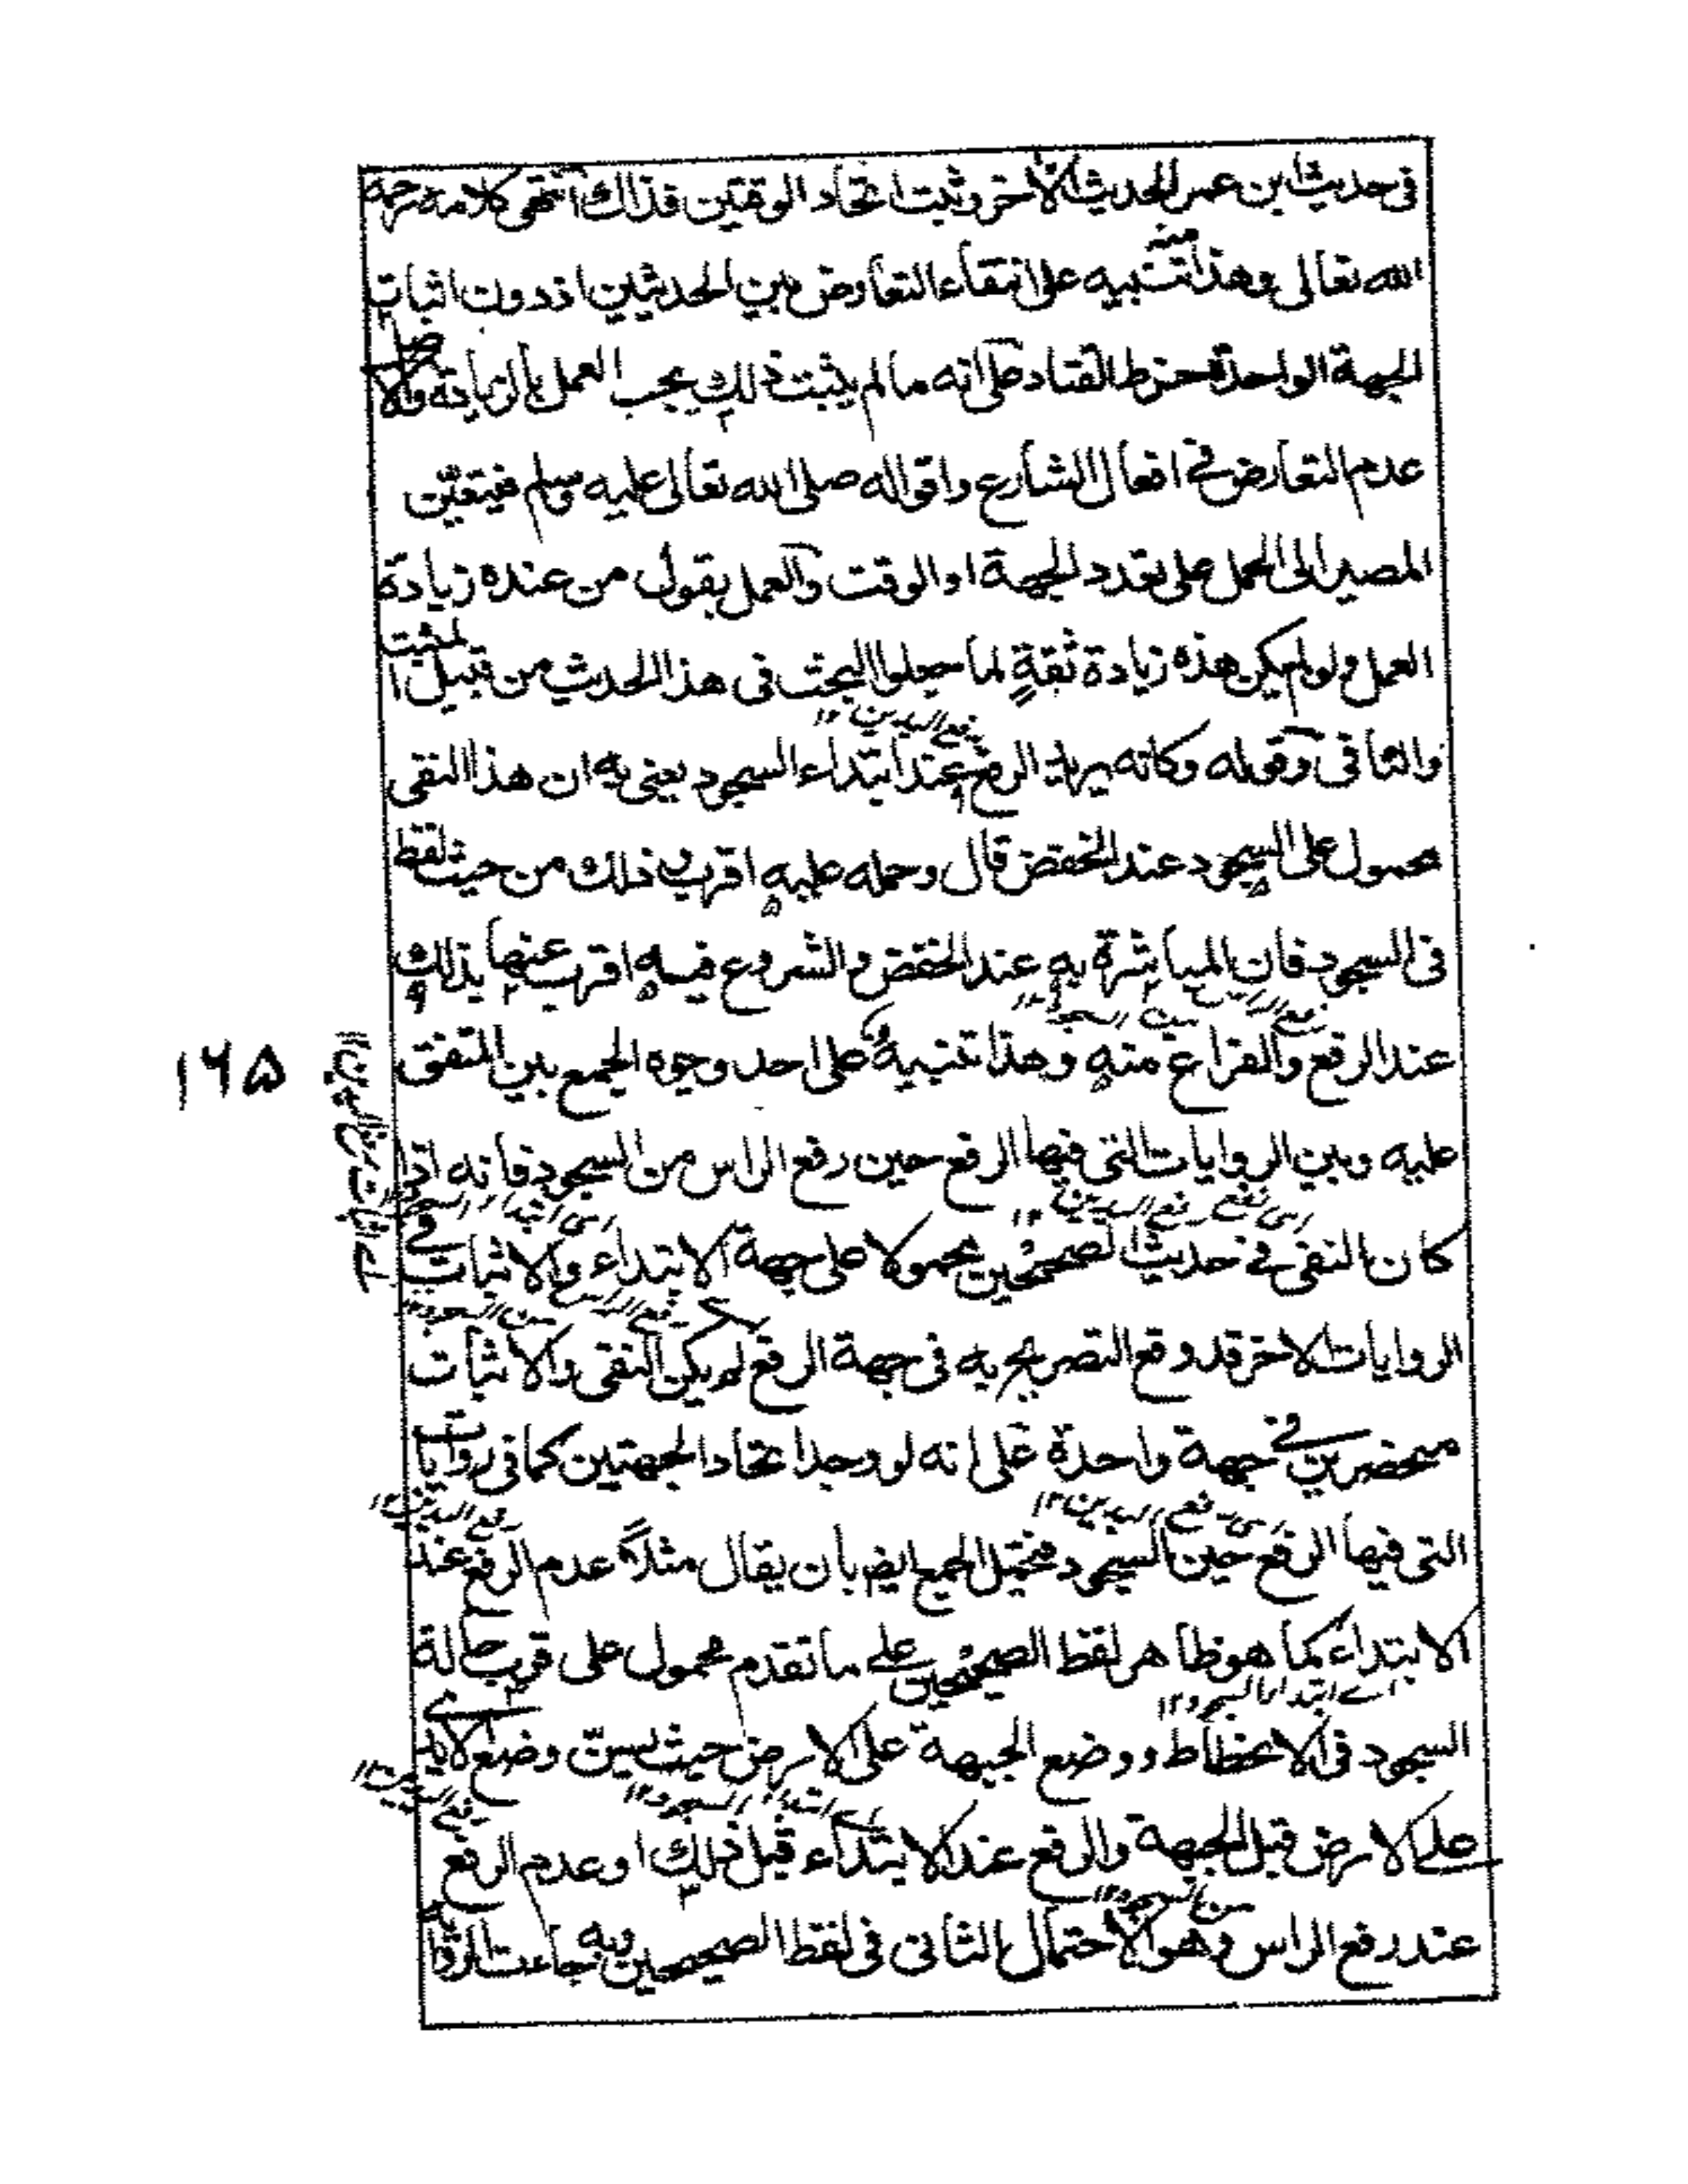 فى حديث ابن عمر الحديث الآخر وثبت اتحاد الوقتين فذالك انتهى كلامه رحمه
الله تعالى وهذا منه تنبيه على انتفاء التعارض بين الحديثين اذ دون اثبات
الجهة الواحدة خرط القتاد على انه ما لم يثبت ذلك يجب العمل بالزيادة والاصل
عدم التعارض فى افعال الشارع واقواله صلى الله تعالى عليه وسلم فيتعين
المصير الى الحمل على تعدد الجهة او الوقت والعمل بقول من عنده زيادة
العمل ولو لم يكن هذه زيادة ثقةٍ لما جعلوا البحث فى هذا الحديث من قبيل المثبت
والنافى وقوله وكانه يريد الرفع عند ابتداء السجود يعنى به ان هذا النفى
رفع اليدين ١٢
محمول على السجود عند الخفض قال وحمله عليه اقرب وذلك من حيث لفظ
فى السجود فان المباشرة به عند الخفض والشروع فيه اقرب عنها بذلك
عند الرفع والفراغ منه وهذا تنبيه على احد وجوه الجمع بين المتفق
رفع الراس من السجود ١٢
عليه وبين الروايات التى فيها الرفع حين رفع الراس من السجود فانه اذا
كان النفى فى حديث الصحيحين محمولا على جهة الابتداء والاثبات فى
اى نفى رفع اليدين ١٢
اى ابتداء السجود
الروايات الاخر قد وقع التصريح به فى جهة الرفع لم يكن النفى والاثبات
رفع الراس من السجود ١٢
منحصرين فى جهة واحدة على انه لو وجد اتحاد الجهتين كما فى روايات
التى فيها الرفع حين السجود فيحتمل الجمع ايضا بان يقال مثلاً عدم الرفع عند
اى رفع اليدين ١٢
رفع اليدين ١٢
الابتداء كما هو ظاهر لفظ الصحيحين على ما تقدم محمول على قرب حالة
اے ابتداء السجود ١٢
السجود فى الانحطاط ووضع الجبهة على الارض حيث يسن وضع الايدى
على الارض قبل الجبهة والرفع عند الابتداء قبل ذلك او عدم الرفع
اے ابتداء السجود ١٢
رفع اليدين ١٢
عند رفع الراس وهو الاحتمال الثانى فى لفظ الصحيحين وبه جاءت الروايات
من السجود ١٢
١٦٥